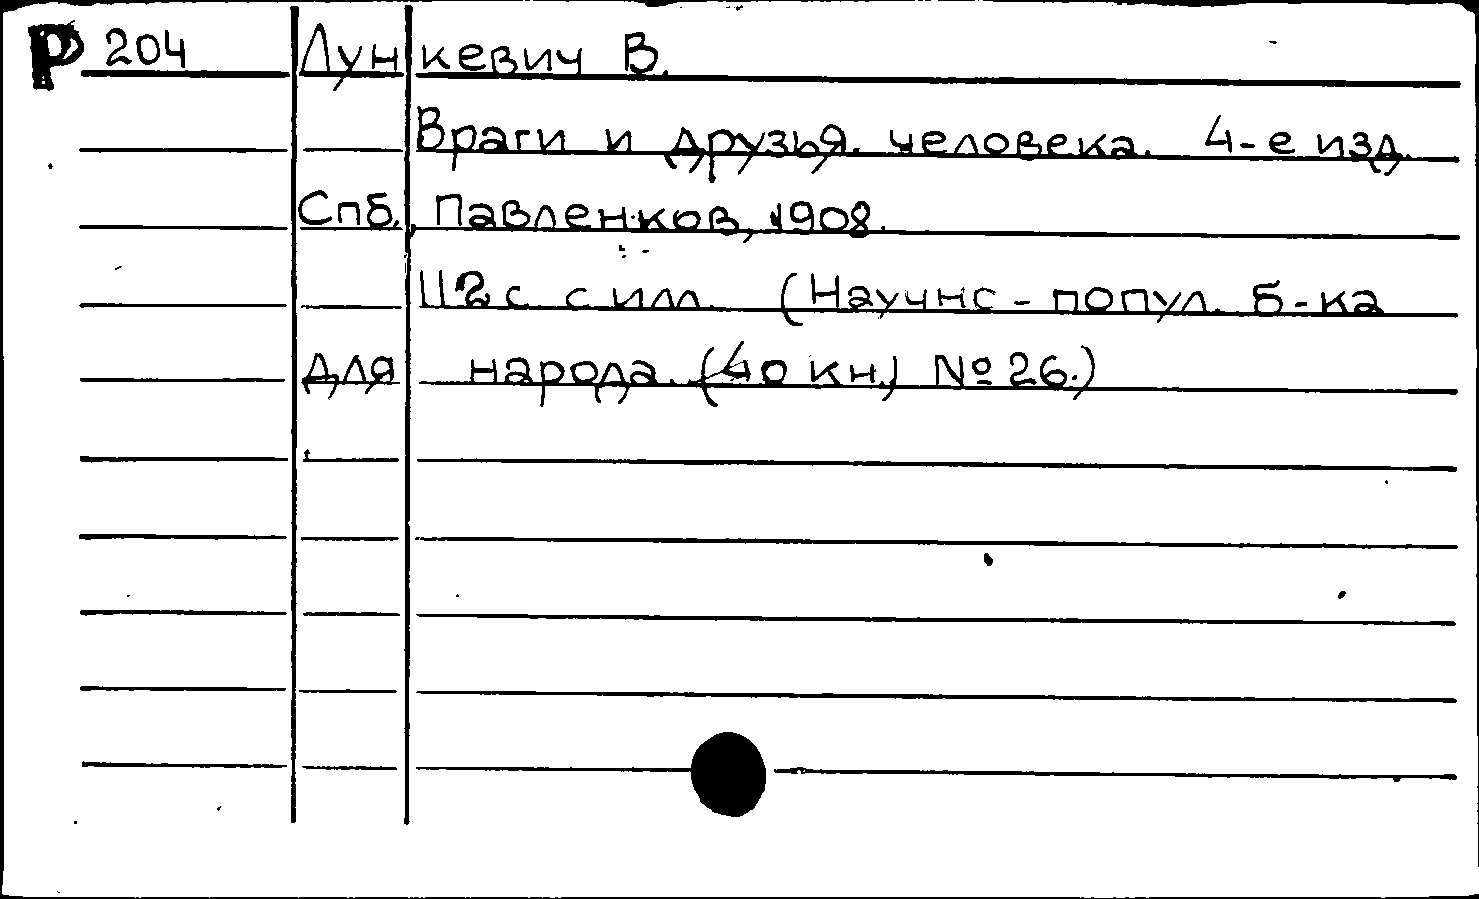 Р 204 Лункевич В.
Враги и друзья человека. 4-е изд.
Спб., Павленков, 1908.
112 с. с илл. (Научно-попул. б-ка
для народа. (40 кн.) № 26.)